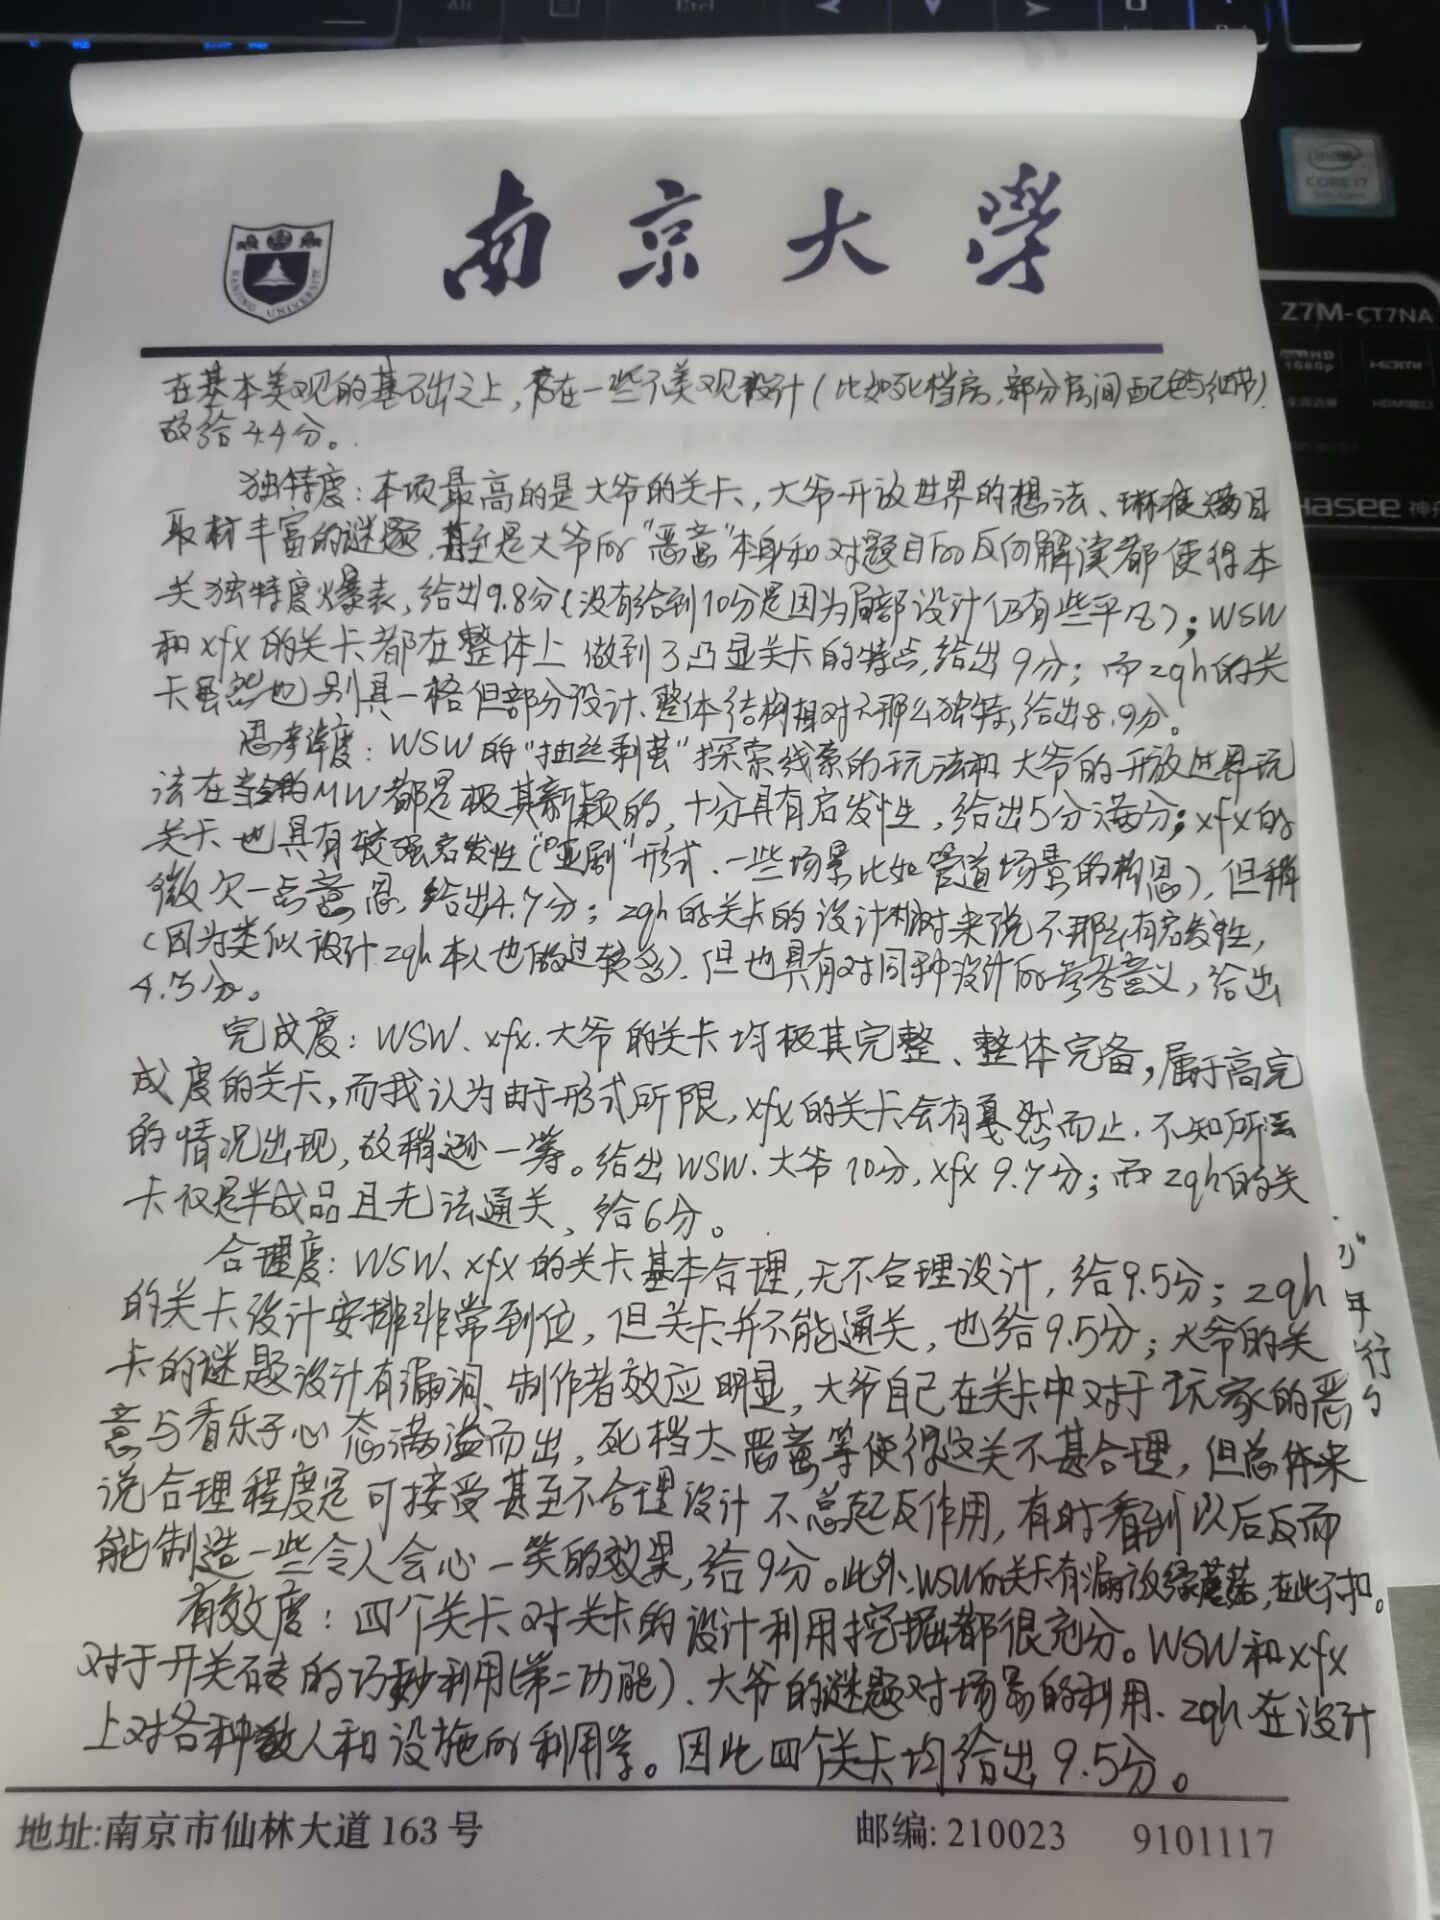 Alt
Ctrl
intel
CORE i7
Z7M-CT7NA
1080p
HDMI
HDMI接口
Hasee 神舟
NANJING UNIVERSITY
南京大學
在基本美观的基础之上，存在一些不美观设计（比如死档房，部分房间配色与细节）
故给4.4分。
独特度：本项最高的是大爷的关卡，大爷开放世界的想法、琳琅满目
取材丰富的谜题，甚至是大爷的“恶意”本身和对题目的反向解读都使得本
关独特度爆表，给出9.8分（没有给到10分是因为局部设计仍有些平凡）；WSW
和xfx的关卡都在整体上做到了凸显关卡的特点，给出9分；而zqh的关
卡虽然也别具一格但部分设计、整体结构相对不那么独特，给出8.9分。
思考深度：WSW的“抽丝剥茧”探索线索的玩法和大爷的开放世界玩
法在当今的MW都是极其新颖的，十分具有启发性，给出5分满分；xfx的
关卡也具有较强启发性（“哑剧”形式、一些场景比如管道场景的构思），但稍
微欠一点意思，给出4.7分；zqh的关卡的设计相对来说不那么有启发性，
（因为类似设计zqh本人也做过较多），但也具有对同种设计的参考意义，给出
4.3分。
完成度：WSW、xfx、大爷的关卡均极其完整、整体完备，属于高完
成度的关卡，而我认为由于形式所限，xfx的关卡会有戛然而止、不知所云
的情况出现，故稍逊一筹。给出WSW、大爷10分，xfx 9.7分；而zqh的关
卡仅是半成品且无法通关，给6分。
合理度：WSW、xfx的关卡基本合理，无不合理设计，给9.5分；zqh
的关卡设计安排非常到位，但关卡并不能通关，也给9.5分；大爷的关
卡的谜题设计有漏洞、制作者效应明显，大爷自己在关卡中对于玩家的恶
意与看乐子心态满溢而出，死档大恶意等使得这关不甚合理，但总体来
说合理程度是可接受甚至不合理设计不总起反作用，有时看到以后反而
能制造一些令人会心一笑的效果，给9分。此外，WSW的关卡有漏放绿蘑菇，在此不扣。
有效度：四个关卡对关卡的设计利用挖掘都很充分。WSW和xfx
对于开关砖的巧妙利用（第二功能）、大爷的谜题对场景的利用、zqh在设计
上对各种敌人和设施的利用等。因此四个关卡均给出9.5分。
地址:南京市仙林大道163号 邮编: 210023 9101117